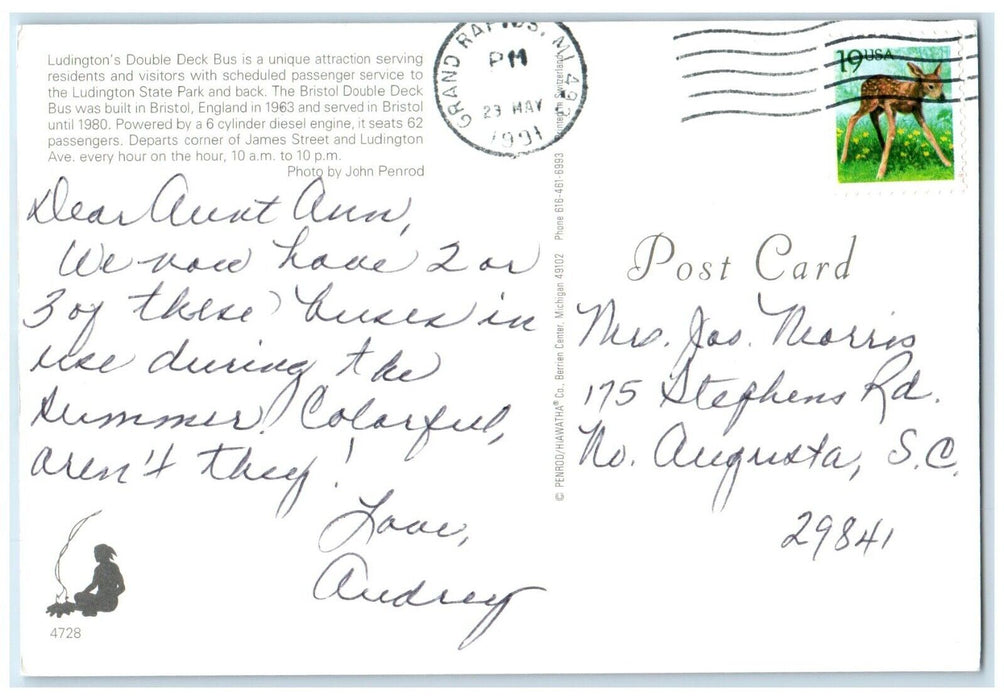 Ludington's Double Deck Bus is a unique attraction serving
residents and visitors with scheduled passenger service to
the Ludington State Park and back. The Bristol Double Deck
Bus was built in Bristol, England in 1963 and served in Bristol
until 1980. Powered by a 6 cylinder diesel engine, it seats 62
passengers. Departs corner of James Street and Ludington
Ave. every hour on the hour, 10 a.m. to 10 p.m.
Photo by John Penrod
Dear Aunt Ann,
We now have 2 or
3 of these buses in
use during the
summer. Colorful,
aren't they!
Love,
Audrey
4728
GRAND RAPIDS, MI 493
PM
29 MAY
1991
© PENROD/HIAWATHA® Co., Berrien Center, Michigan 49102 Phone 616-461-6993 Printed in Switzerland
19USA
Post Card
Mrs. Jas. Morris
175 Stephens Rd.
No. Augusta, S.C.
29841